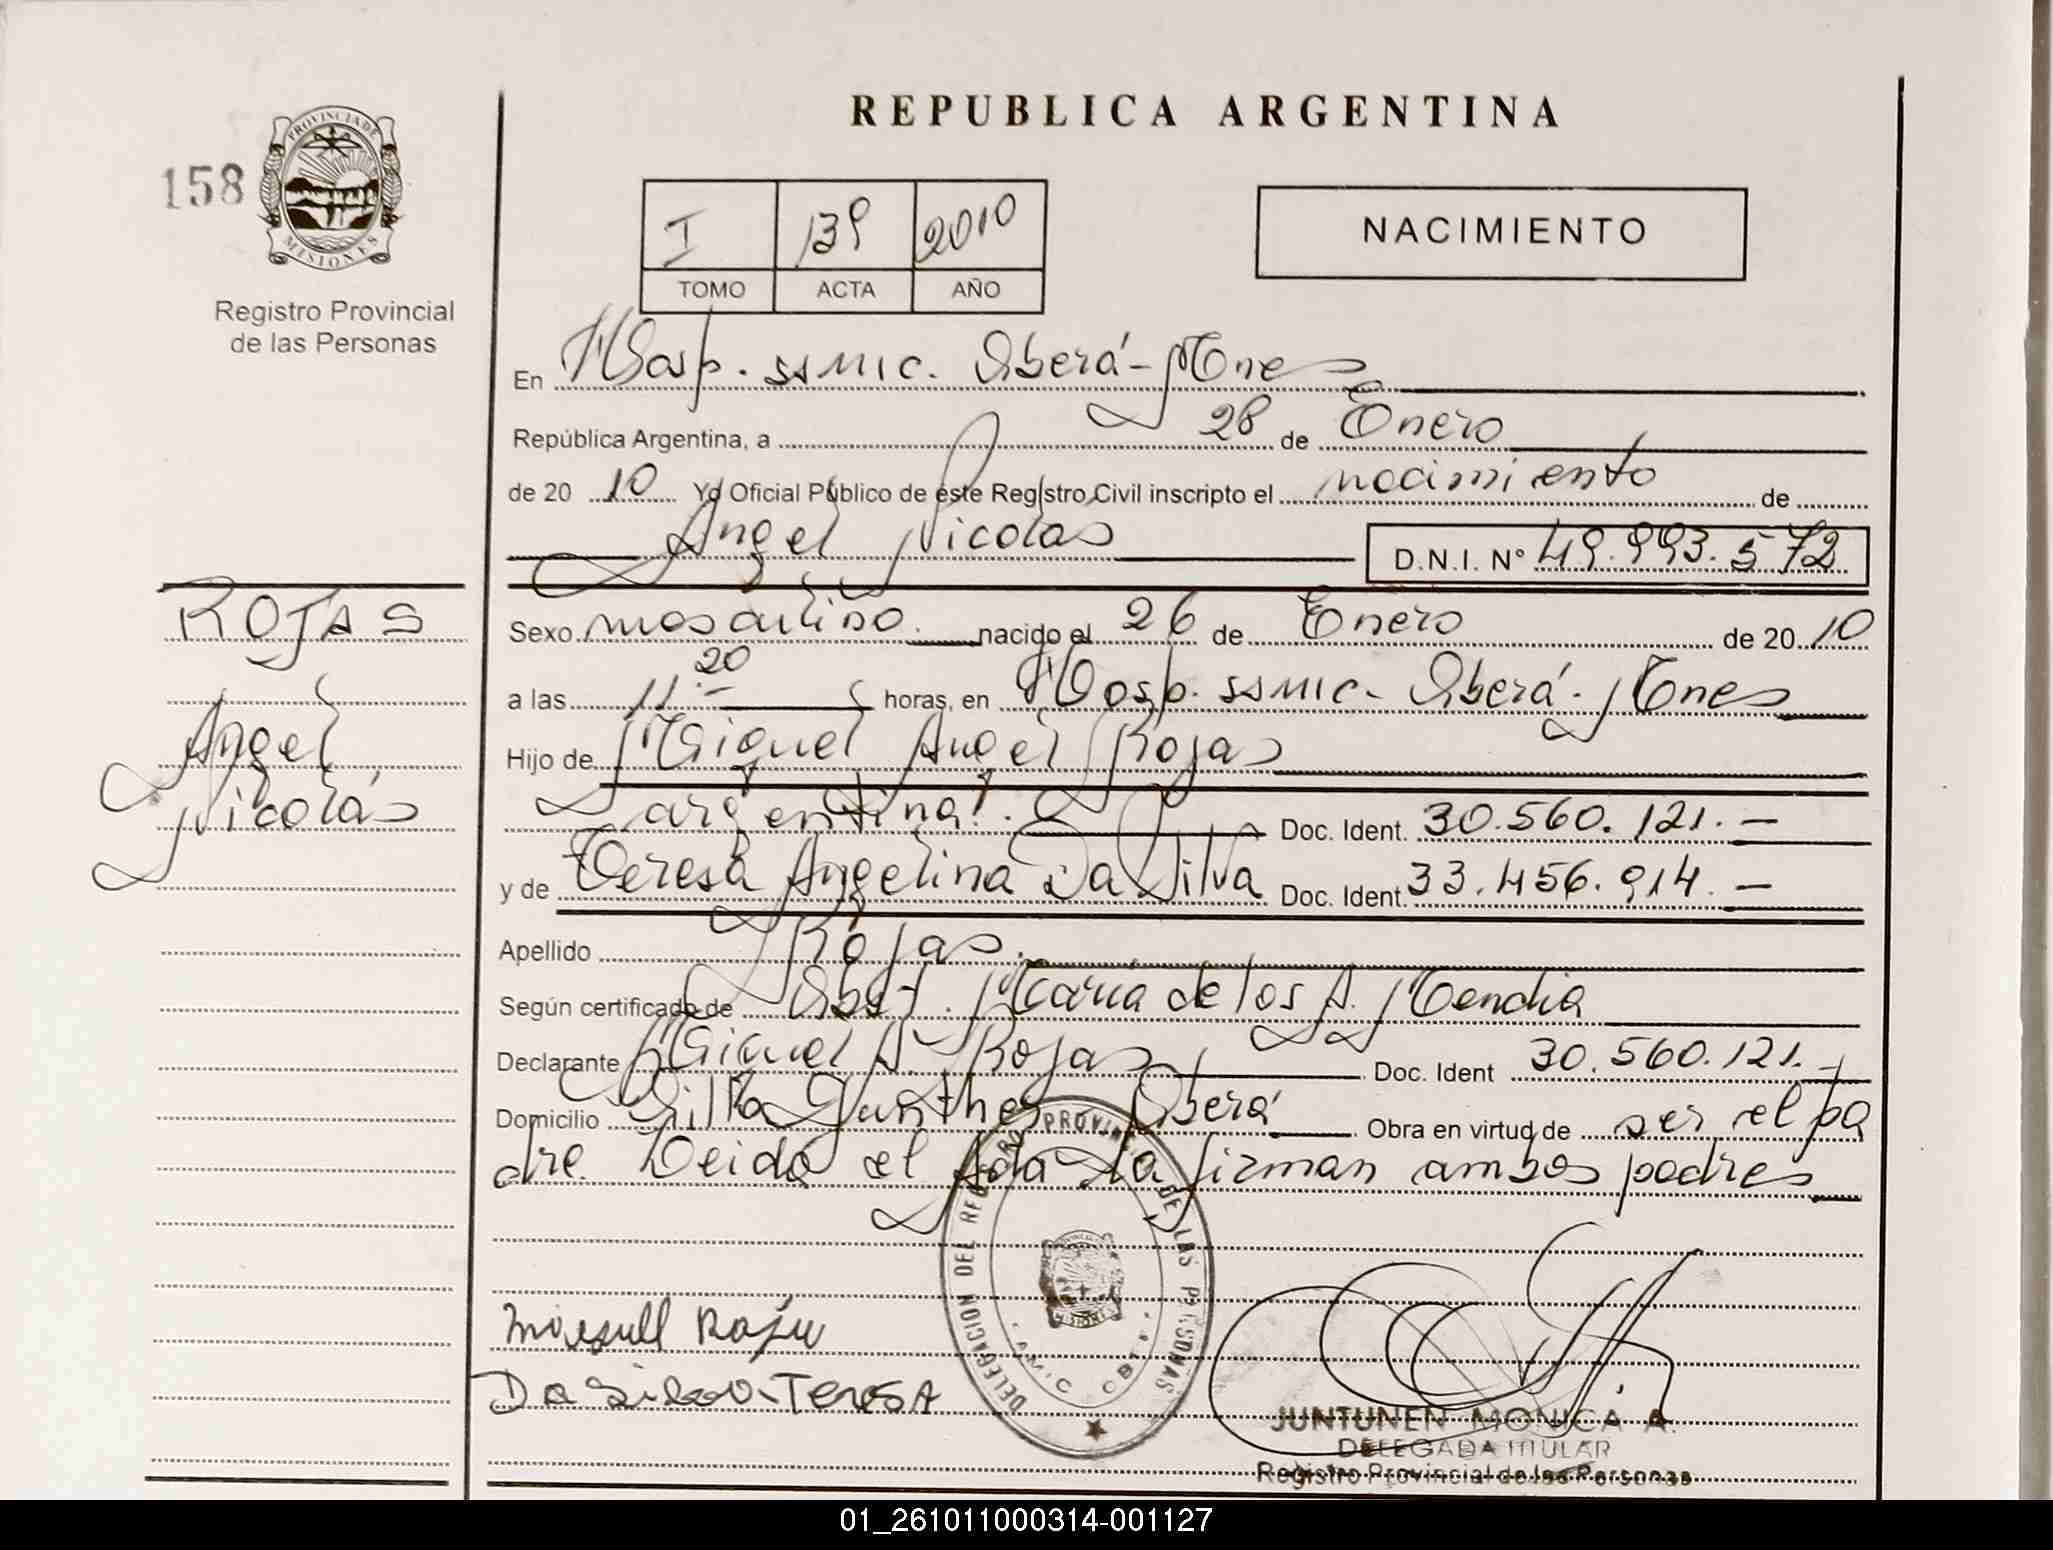 REPUBLICA ARGENTINA
158
PROVINCIA DE
MISIONES
Registro Provincial
de las Personas
I 139 2010
TOMO ACTA AÑO
NACIMIENTO
En Hosp. SSMIC. Oberá - Mnes
República Argentina, a 28 de Enero
de 20 10 Yo Oficial Público de éste Registro Civil inscripto el nacimiento de
Angel Nicolás D.N.I. Nº 49.993.572
ROJAS
Angel
Nicolás
Sexo masculino. nacido el 26 de Enero de 20 10
a las 11:20 horas, en Hosp. SSMIC - Oberá - Mnes
Hijo de Miguel Angel Rojas
argentina. Doc. Ident. 30.560.121.-
y de Teresa Angelina Da Silva Doc. Ident. 33.456.914.-
Apellido Rojas.
Según certificado de Obst. María de los A. Mendia
Declarante Miguel A. Rojas Doc. Ident 30.560.121.-
Domicilio Villa Gunther Oberá Obra en virtud de ser el pa
dre. Leida el Acta la firman ambos padres
DELEGACION DEL REGISTRO PROVINCIAL DE LAS PERSONAS
Rojas
Da Silva Teresa
JUNTUNEN MONICA A.
DELEGADA TITULAR
Registro Provincial de las Personas
01_261011000314-001127